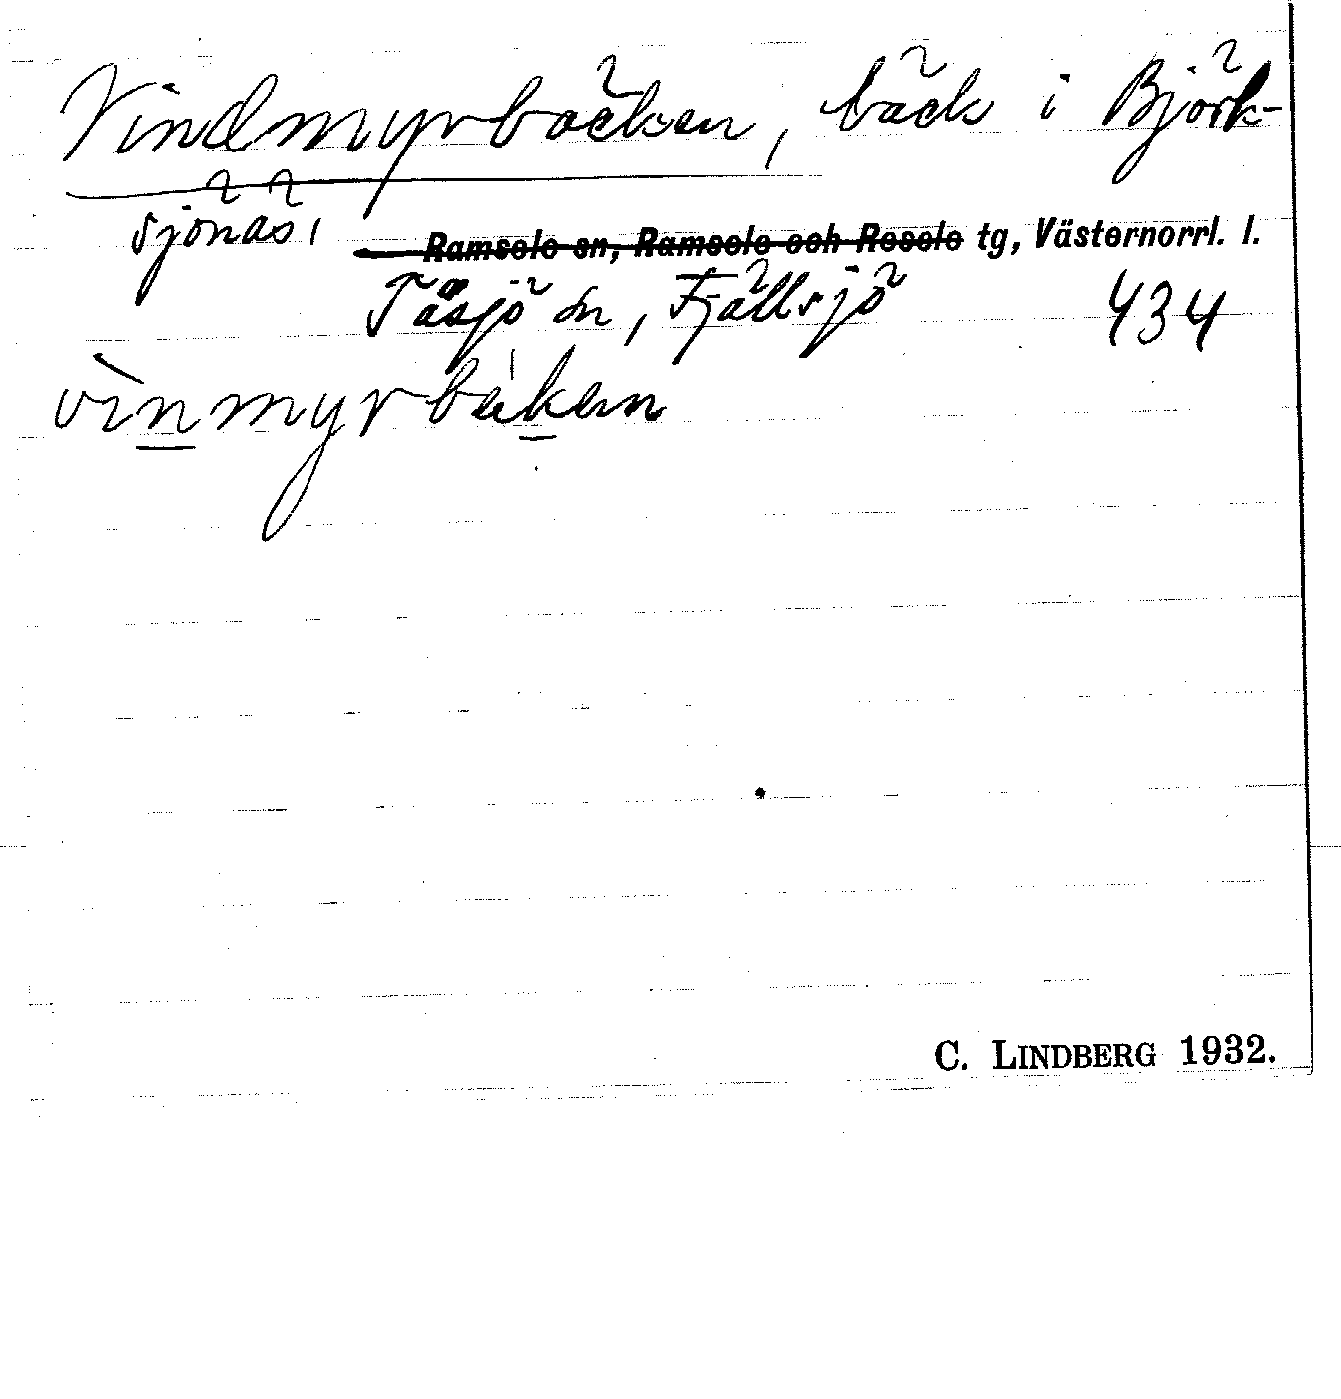 Vindmyrbäcken, bäck i Björk-
sjönäs,
Ramsele sn, Ramsele och Resele tg, Västernorrl. l.
Tåsjö sn, Fjällsjö 434
vìnmyrbäken
C. LINDBERG 1932.